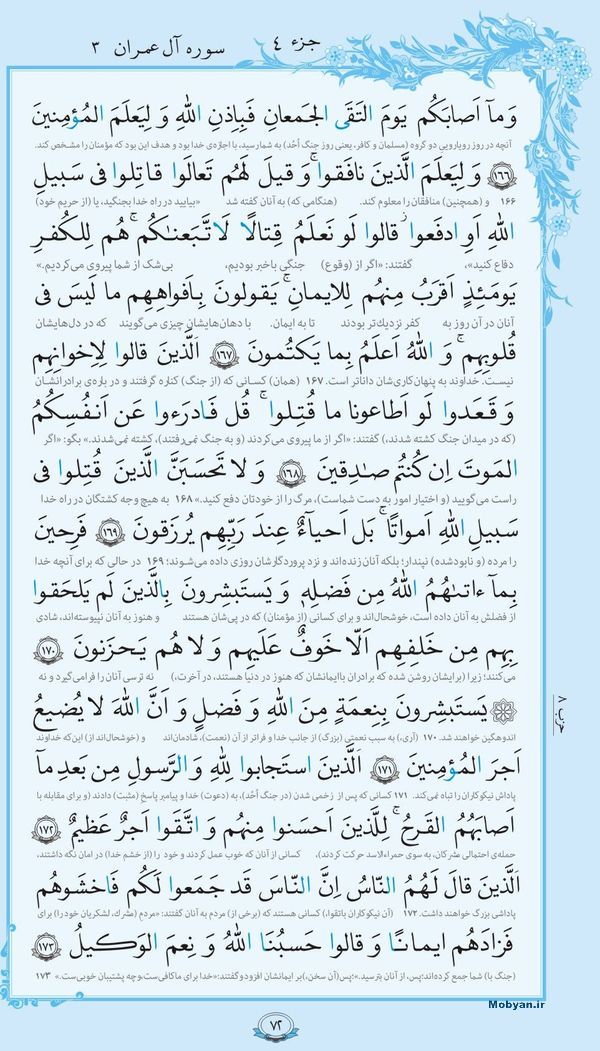 جزء ۴
سوره آل عمران ۳
وَ مآ اَصابَكُم يَومَ التَقَى الجَمعانِ فَبِاِذنِ اللهِ وَ لِيَعلَمَ المُؤمِنينَ
آنچه در روز رویارویی دو گروه (مسلمان و کافر، یعنی روز جنگ اُحُد) به شما رسید، با اجازه‌ی خدا بود و هدف این بود که مؤمنان را مشخص کند.
۱۶۶ وَ لِيَعلَمَ الَّذينَ نافَقوا ۚ وَ قيلَ لَهُم تَعالَوا قاتِلوا فى سَبيلِ
۱۶۶ و (همچنین) منافقان را معلوم کند. (هنگامی که) به آنان گفته شد «بیایید در راه خدا بجنگید، یا (از حریم خود)
اللهِ اَوِ ادفَعوا ۖ قالوا لَو نَعلَمُ قِتالًا لَاتَّبَعناكُم ۗ هُم لِلكُفرِ
دفاع کنید»، گفتند: «اگر از (وقوع) جنگی باخبر بودیم، بی‌شک از شما پیروی می‌کردیم.»
يَومَئِذٍ اَقرَبُ مِنهُم لِلايمانِ ۚ يَقولونَ بِاَفواهِهِم ما لَيسَ فى
آنان در آن روز به کفر نزدیک‌تر بودند تا به ایمان. با دهان‌هایشان چیزی می‌گویند که در دل‌هایشان
قُلوبِهِم ۗ وَ اللهُ اَعلَمُ بِما يَكتُمونَ ۱۶۷ اَلَّذينَ قالوا لِاِخوانِهِم
نیست. خداوند به پنهان‌کاری‌شان داناتر است. ۱۶۷ (همان) کسانی که (از جنگ) کناره گرفتند و در باره‌ی برادرانشان
وَ قَعَدوا لَو اَطاعونا ما قُتِلوا ۗ قُل فَادرَءوا عَن اَنفُسِكُمُ
(که در میدان جنگ کشته شدند،) گفتند: «اگر از ما پیروی می‌کردند (و به جنگ نمی‌رفتند)، کشته نمی‌شدند.» بگو: «اگر
المَوتَ اِن كُنتُم صادِقينَ ۱۶۸ وَ لا تَحسَبَنَّ الَّذينَ قُتِلوا فى
راست می‌گویید (و اختیار امور به دست شماست)، مرگ را از خودتان دفع کنید.» ۱۶۸ به هیچ وجه کشتگان در راه خدا
سَبيلِ اللهِ اَمواتًا ۚ بَل اَحياءٌ عِندَ رَبِّهِم يُرزَقونَ ۱۶۹ فَرِحينَ
را مرده (و نابودشده) نپندار؛ بلکه آنان زنده‌اند و نزد پروردگارشان روزی داده می‌شوند؛ ۱۶۹ در حالی که برای آنچه خدا
بِما ءاتاهُمُ اللهُ مِن فَضلِهِ وَ يَستَبشِرونَ بِالَّذينَ لَم يَلحَقوا
از فضلش به آنان داده است، خوشحال‌اند و برای کسانی (از مؤمنان) که در پی‌شان هستند و هنوز به آنان نپیوسته‌اند، شادی
بِهِم مِن خَلفِهِم اَلّا خَوفٌ عَلَيهِم وَ لا هُم يَحزَنونَ ۱۷۰
می‌کنند؛ زیرا (برایشان روشن شده که برادران باایمانشان که هنوز در دنیا هستند، در آخرت،) نه ترسی آنان را فرامی‌گیرد و نه
يَستَبشِرونَ بِنِعمَةٍ مِنَ اللهِ وَ فَضلٍ وَ اَنَّ اللهَ لا يُضيعُ
اندوهگین خواهند شد. ۱۷۰ (آری،) به سبب نعمتی (بزرگ) از جانب خدا و فراتر از آن (نعمت)، شادمان‌اند و (خوشحال‌اند از) این‌که خداوند
اَجرَ المُؤمِنينَ ۱۷۱ اَلَّذينَ استَجابوا لِلّهِ وَ الرَّسولِ مِن بَعدِ مآ
پاداش نیکوکاران را تباه نمی‌کند. ۱۷۱ کسانی که پس از زخمی شدن (در جنگ اُحُد)، به (دعوت) خدا و پیامبر پاسخ (مثبت) دادند (و برای مقابله با
اَصابَهُمُ القَرحُ ۚ لِلَّذينَ اَحسَنوا مِنهُم وَ اتَّقَوا اَجرٌ عَظيمٌ ۱۷۲
حمله‌ی احتمالی مشرکان، به سوی حمراءالاسد حرکت کردند)، کسانی از آنان که خوب عمل کردند و خود را (از خشم خدا) در امان نگه داشتند،
اَلَّذينَ قالَ لَهُمُ النّاسُ اِنَّ النّاسَ قَد جَمَعوا لَكُم فَاخشَوهُم
پاداشی بزرگ خواهند داشت. ۱۷۲ (آن نیکوکاران باتقوا،) کسانی هستند که (برخی از) مردم به آنان گفتند: «مردم (مشرک، لشکریان خود را) برای
فَزادَهُم ايمانًا وَ قالوا حَسبُنَا اللهُ وَ نِعمَ الوَكيلُ ۱۷۳
(جنگ با) شما جمع کرده‌اند؛ پس، از آنان بترسید.»؛ پس (آن سخن،) بر ایمانشان افزود و گفتند: «خدا برای ما کافی‌ست و چه پشتیبان خوبی‌ست.» ۱۷۳
حزب ۸
۷۲
Mobyan.ir